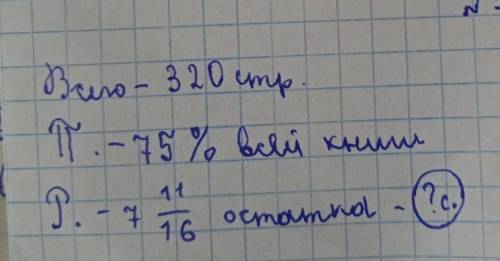 Всего - 320 стр.
П. - 75 % всей книги
Р. - 7 11/16 остатка - ?с.